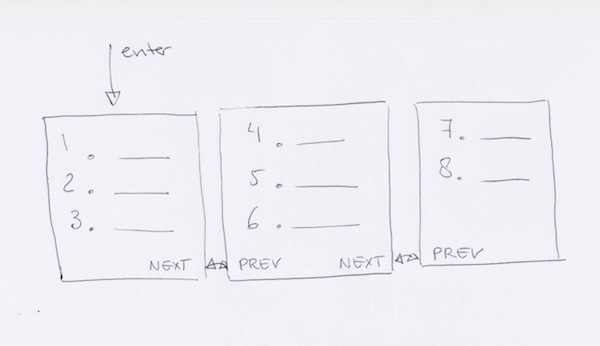 enter
1.
2.
3.
NEXT
4.
5.
6.
PREV NEXT
7.
8.
PREV